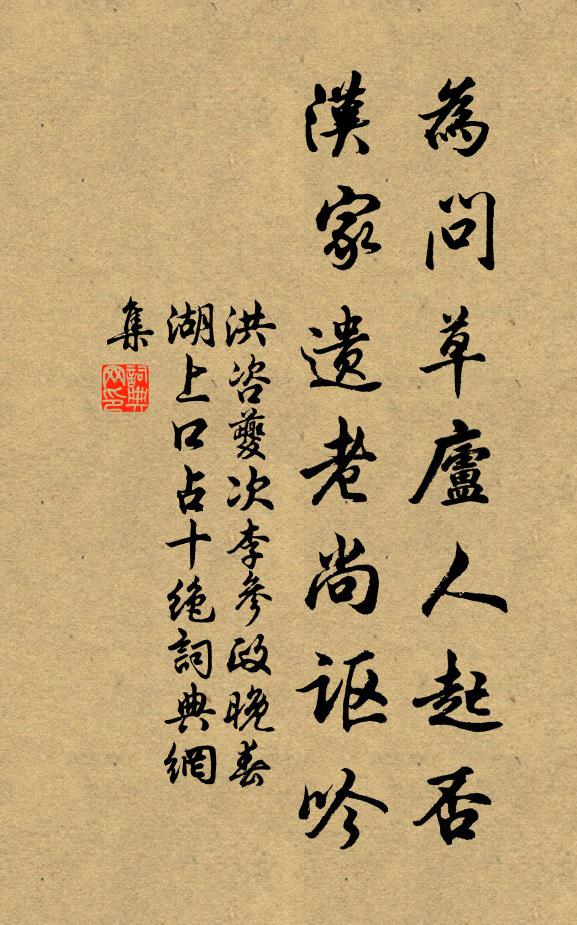 為問草廬人起否
漢家遺老尚謳吟
洪咨夔次李參政晚春
湖上口占十絕詞典網
集
詞典
网印